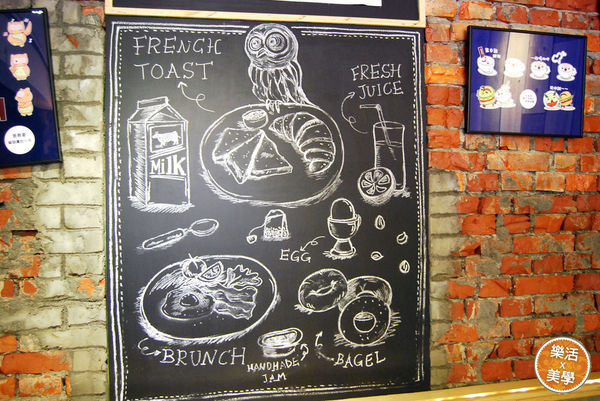 FRENCH
TOAST
FRESH
JUICE
MiLK
EGG
BRUNCH
HANDMADE
JAM
BAGEL
樂活
x
美學